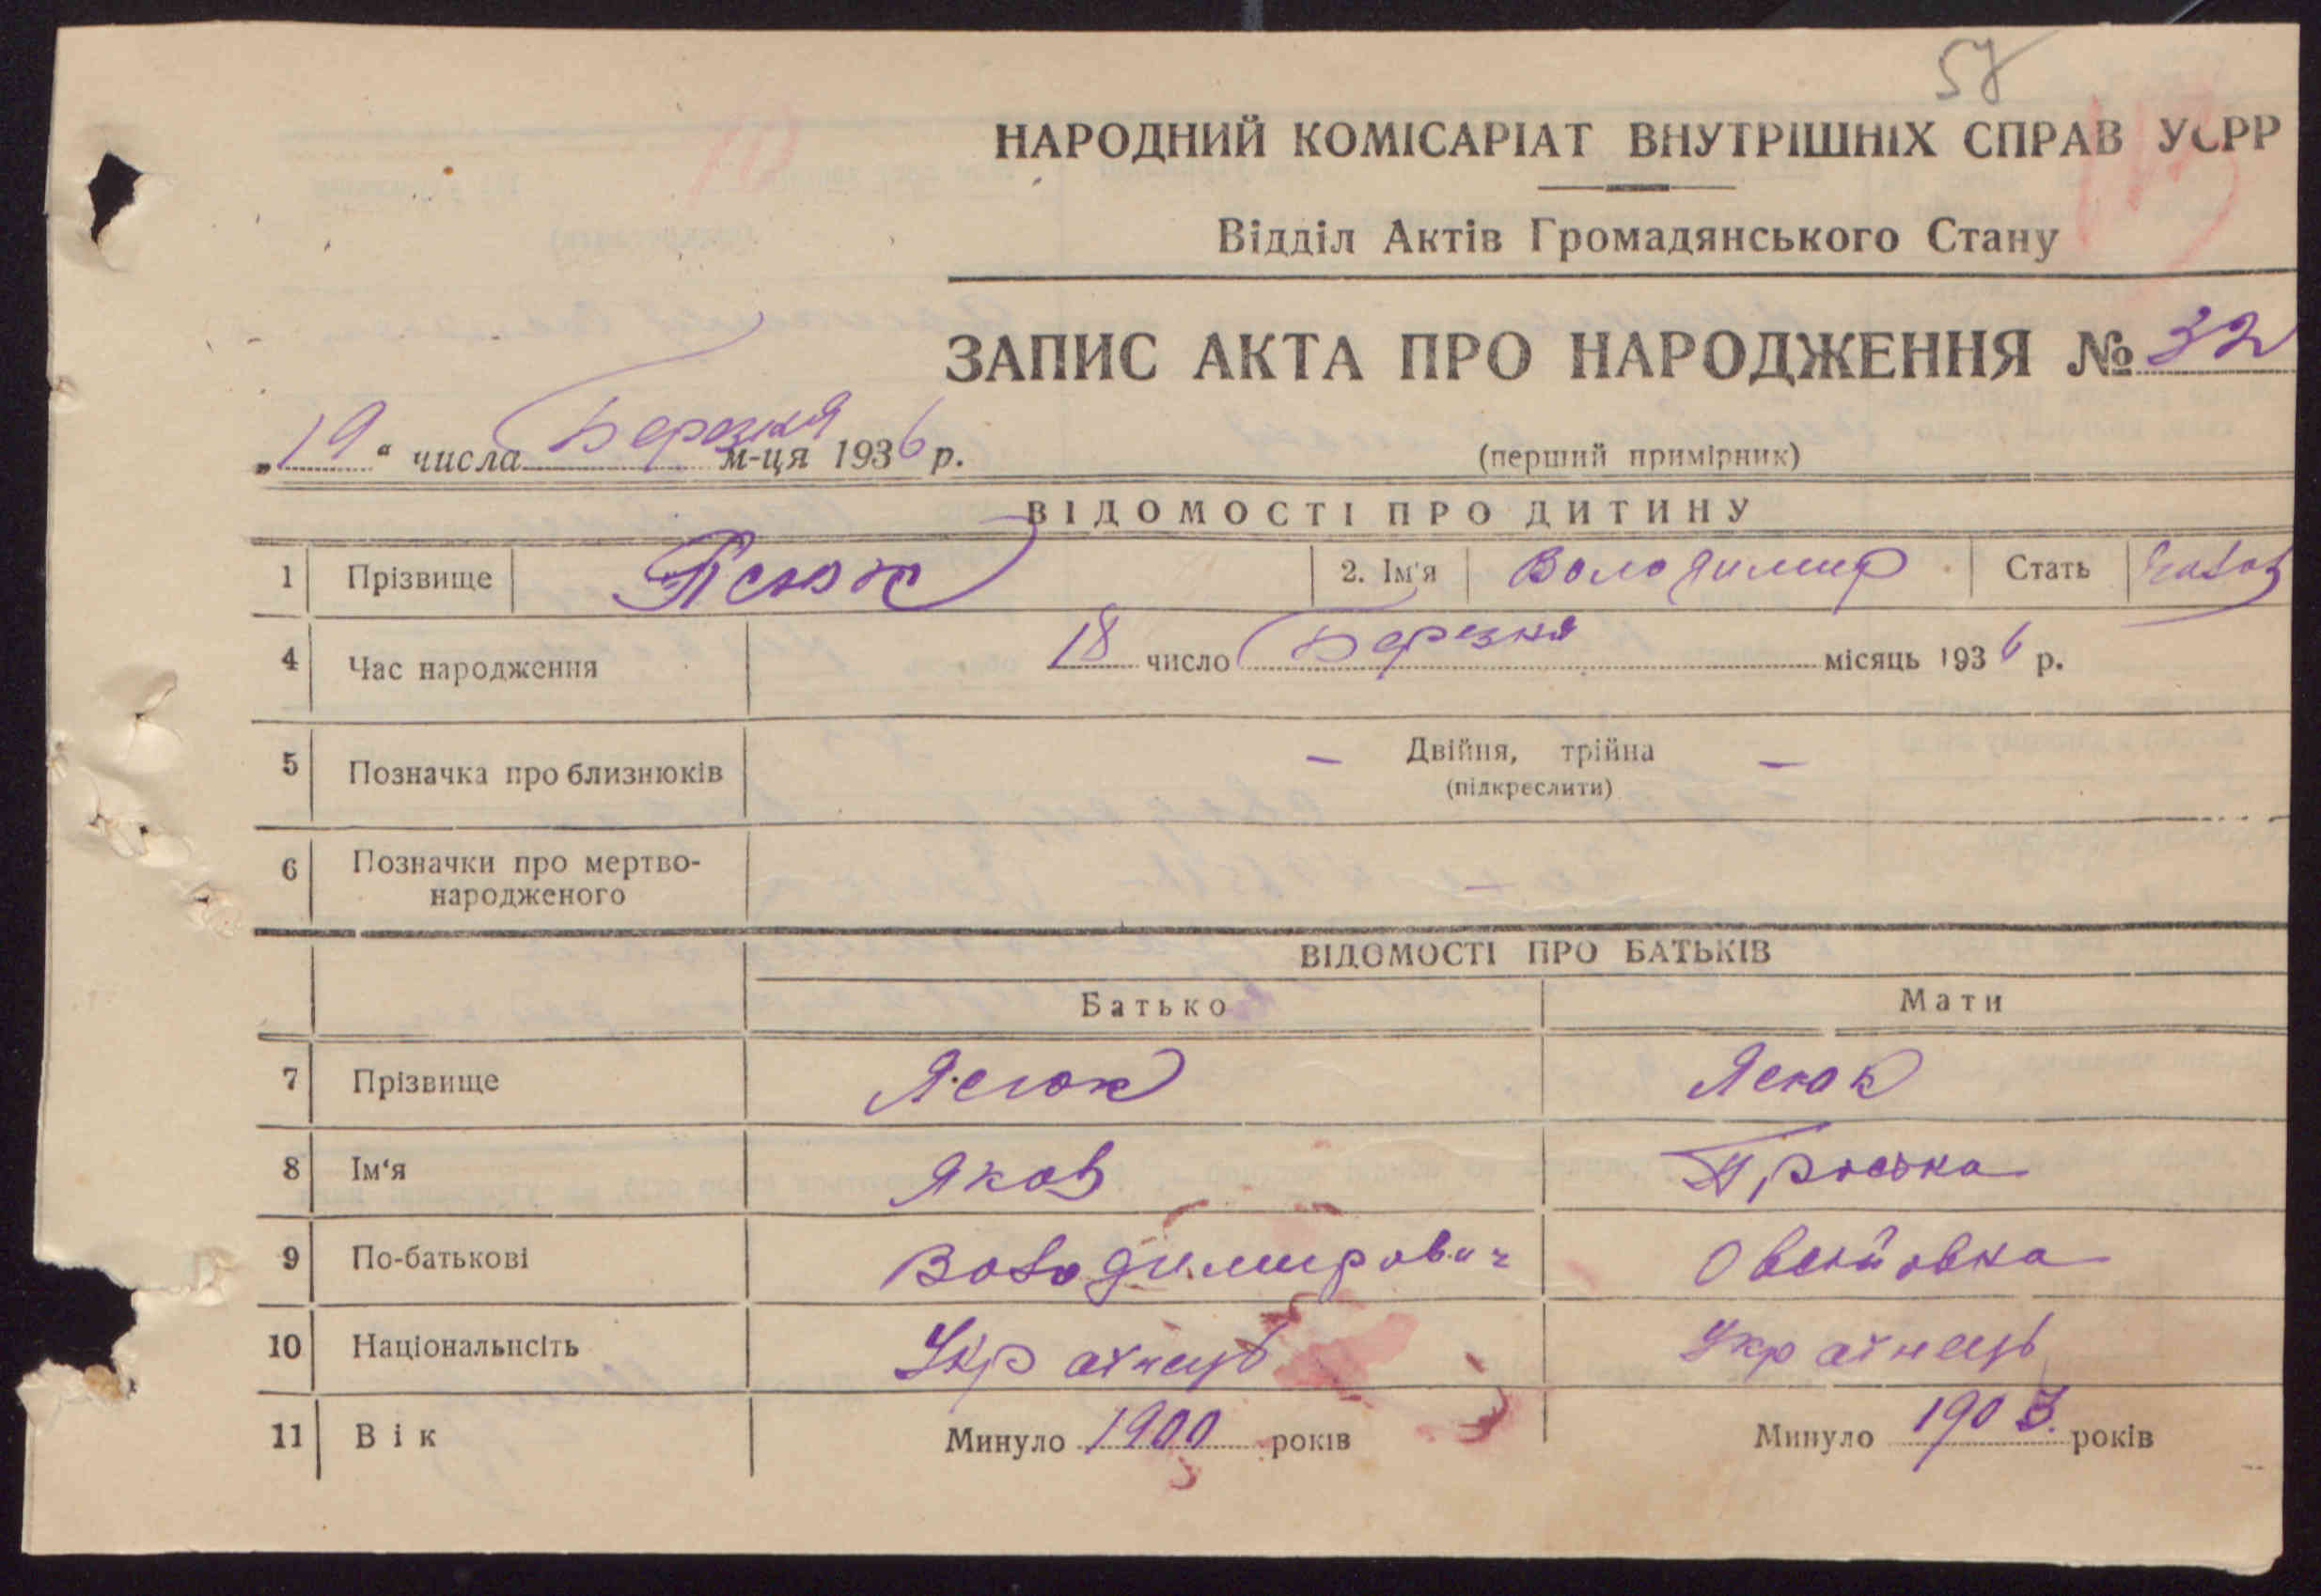 57
НАРОДНИЙ КОМІСАРІАТ ВНУТРІШНІХ СПРАВ УСРР
Відділ Актів Громадянського Стану
ЗАПИС АКТА ПРО НАРОДЖЕННЯ № 32
„19“ числа Березня м-ця 1936 р.
(перший примірник)
ВІДОМОСТІ ПРО ДИТИНУ
1 Прізвище Ясюк 2. Ім'я Володимир Стать
4 Час народження 18 число Березня місяць 1936 р.
5 Позначка про близнюків — Двійня, трійна —
(підкреслити)
6 Позначки про мертво-
народженого —
ВІДОМОСТІ ПРО БАТЬКІВ
Батько Мати
7 Прізвище Ясюк Ясюк
8 Ім‘я Яков Проська
9 По-батькові Володимирович Овсійовна
10 Національнсіть Українець Українець
11 Вік Минуло 1900 років Минуло 1903. років